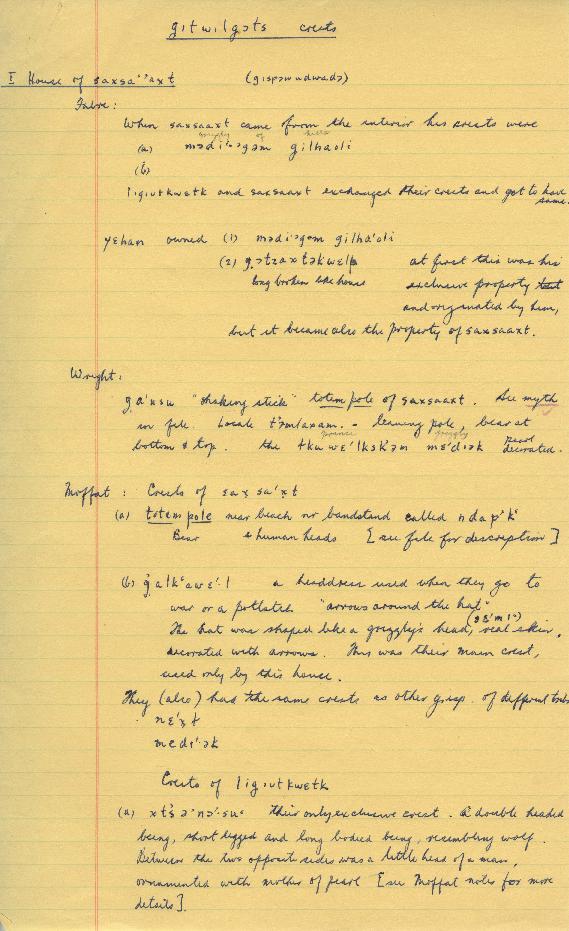 gɪtwɪlgɔts crests
I House of saxsa''axt (gɪspəwudwadə)
Fabre:
When saxsaaxt came from the interior his crests were
grizzly of
(a) mədi''əgəm gilhaoli
(b)
lıgıutkwɛtk and saxsaaxt exchanged their crests and got to have
same.
yɛhan owned (1) mədi'əgəm gilha'oli
(2) at first this was his
long broken like house exclusive property
and originated by him,
but it became also the property of saxsaaxt.
Wright:
ga'xsu "shaking stick" totem pole of saxsaaxt. See myth
in file. Locale t'əmlaxam. - leaning pole, bear at
prince grizzly pearl
bottom & top. the mɛ'diək decorated.
Moffat: Crests of saxsa'xt
(a) totem pole near beach nr bandstand called ndap'k'
Bear & human heads [see file for description]
(b) galk'awɛ'·l a headdress used when they go to
war or a potlatch "arrows around the hat"
The hat was shaped like a grizzly's head, real skin,
decorated with arrows. This was their main crest,
used only by this house.
They (also) had the same crests as other gisp. of different tribes
nɛ'xt
medi'·ək
Crests of lıgıutkwɛtk
(a) xtsə'nə'·su' their only exclusive crest. A double headed
being, short legged and long bodied being, resembling wolf.
Between the two opposite sides was a little head of a man,
ornamented with mother of pearl [see Moffat notes for more
details].